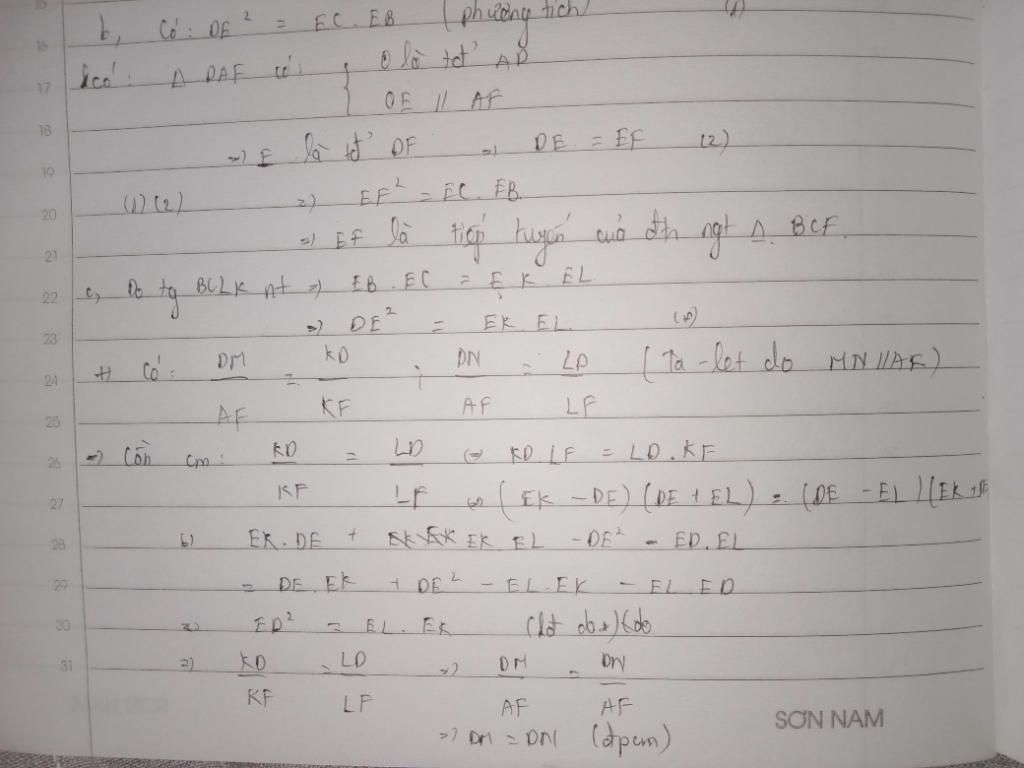 b, Có: DE² = EC.EB (phương tích) (1)
Lại có: Δ DAF có: { O là tđ' AD
OE // AF
=> E là tđ' DF => DE = EF (2)
(1)(2) => EF² = EC.EB
=> EF là tiếp tuyến của đtr ngt Δ BCF.
c, Do tg BCLK nt => EB.EC = EK.EL
=> DE² = EK.EL (*)
+) Có: DM/AF = KD/KF ; DN/AF = LD/LF (Ta-let do MN//AF)
=> Cần cm: KD/KF = LD/LF <=> KD.LF = LD.KF
<=> (EK - DE)(DE + EL) = (DE - EL)(EK + DE
<=> EK.DE + EK.EL - DE² - ED.EL
= DE.EK + DE² - EL.EK - EL.ED
<=> ED² = EL.EK
=> KD/KF = LD/LF => DM/AF = DN/AF
=> DM = DN (đpcm)
SƠN NAM
16
17
18
19
20
21
22
23
24
25
26
27
28
29
30
31